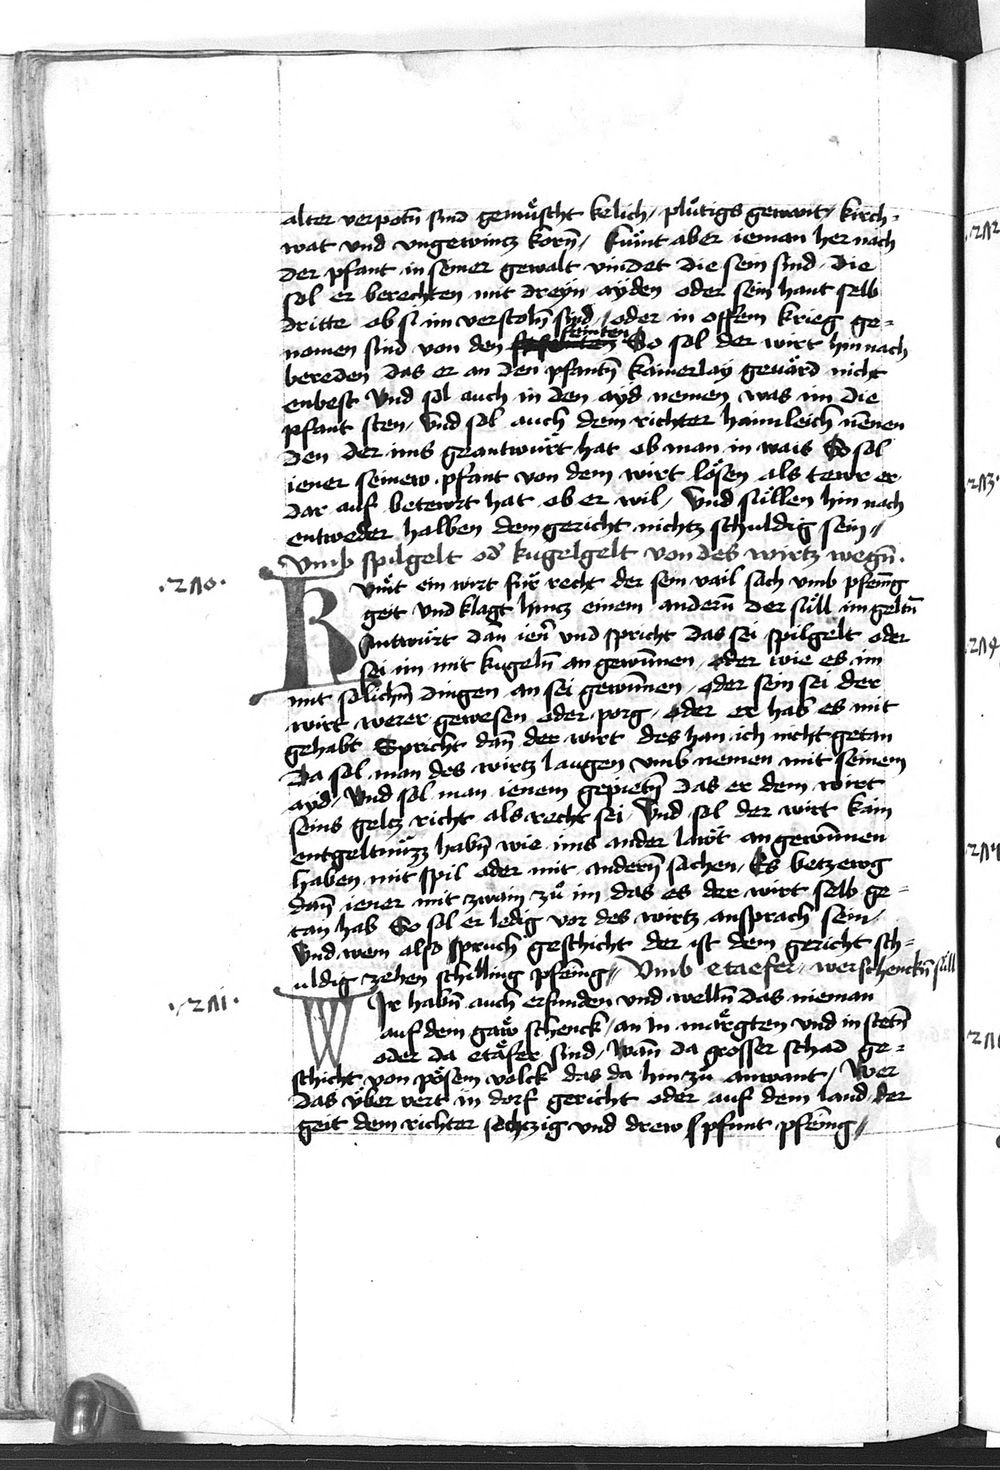 alter verpotn̄ sind gemüscht kelich / plůtigs gewant / kirch-
wat vnd vngewintz korn̄ / kumt aber ieman her nach
der pfant in seiner gewalt vindet die sein sind / die
sol er berechten mit dreyn ayden oder sein hant selb
dritte ob si im verstoln̄ sind / oder in offem krieg ge-
nomen sind von den feinten So sol der wirt hin nach
bereden das er an den pfantn̄ kainerlay geuärd nicht
enbest Vnd sol auch in den ayd nemen was im die
pfant sten / Vnd sol auch dem richter haimleich nēnen
den der ims geantwürt hat ob man in wais So sol
iener seinew pfant von dem wirt lösen als tewr er
dar auf betewrt hat ob er wil / Vnd süllen hin nach
entweder halben dem gericht nichtz schuldig sein //
Vmb spilgelt od̓ kugelgelt von des wirtz wegn̄ .
.210. Kumt ein wirt für recht der sein vail sach vmb pfēnīg
geit vnd klagt hincz einem andern̄ der süll im geltn̄
Antwürt dan ien̓ vnd spricht das sei spilgelt oder
sei im mit kugeln̄ an gewūnen / oder wie es im
mit solichn̄ dingen an sei gewūnen / oder sein sei der
wirt werer gewesen oder porg / oder er hab es mit
gehabt Spricht dan̄ der wirt des han ich nicht getan
Da sol man des wirtz laugen vmb nemen mit seinem
ayd / Vnd sol man ienem gepietn̄ das er dem wirt
seins geltz richt als recht sei / Vnd sol der wirt kain
entgeltnüzz habn̄ wie ims ander läwt an gewūnnen
haben mit spil oder mit andern̄ sachen / Es betzewg
dan̄ iener mit zwain zů im das es der wirt selb ge-
tan hab So sol er ledig vor des wirtz ansprach sein /
Vnd wem also spruch geschicht der ist dem gericht sch-
uldig zehen schilling pfēnīg // Vmb etaefer / wer schenckn̄ süll
.211. WIr habn̄ auch erfunden vnd welln̄ das nieman
auf dem gäw schenck / an In märgten vnd in stetn̄
oder da etäfer sind / Wan̄ da grosser schad ge-
schicht von pösem volck das da hin zů anwant / Wer
das vber vert in dorf gericht oder auf dem land / der
geit dem richter sechtzig vnd drew s pfunt pfēnīg //
.212
.213.
.214